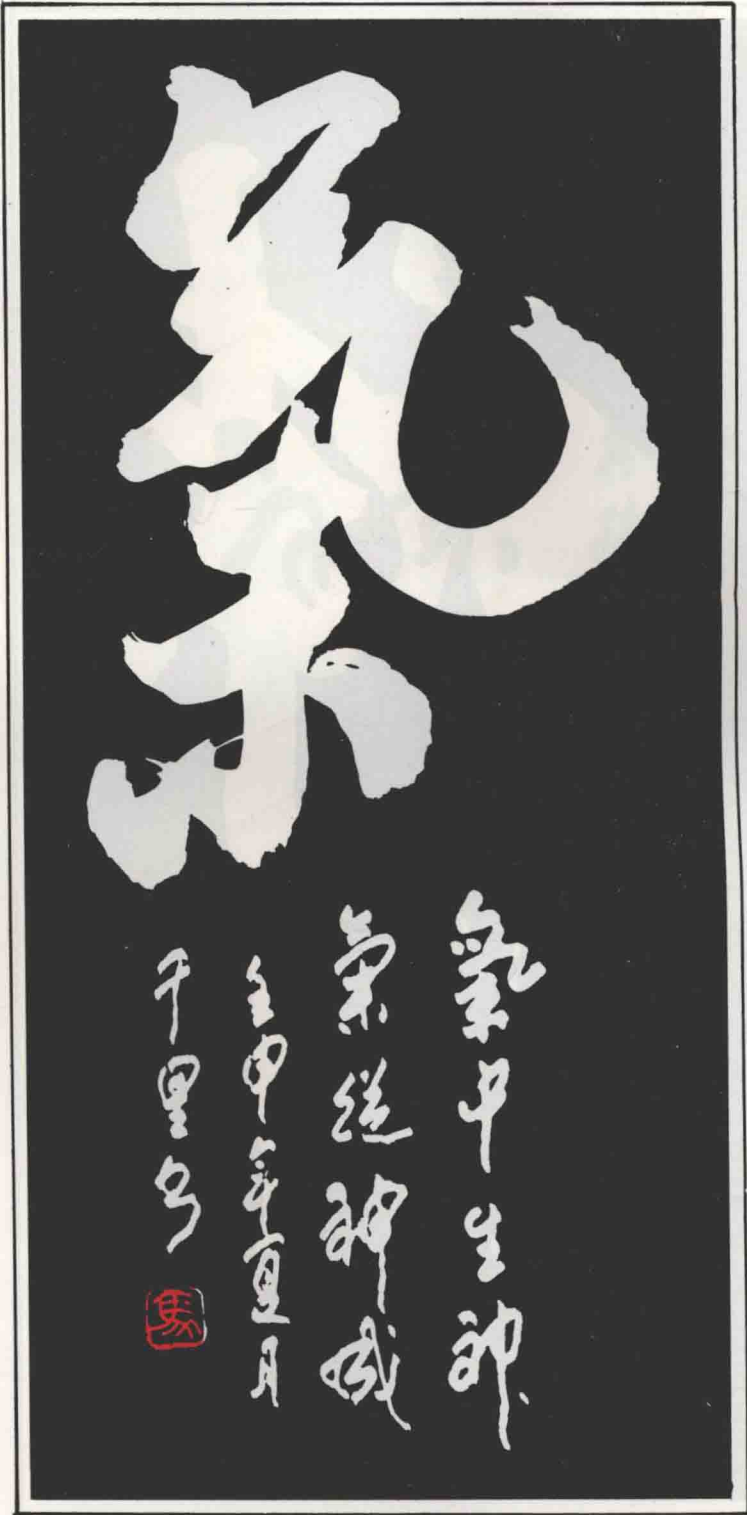 氣
氣中生神
氣從神成
壬申年夏月
千里书
馬